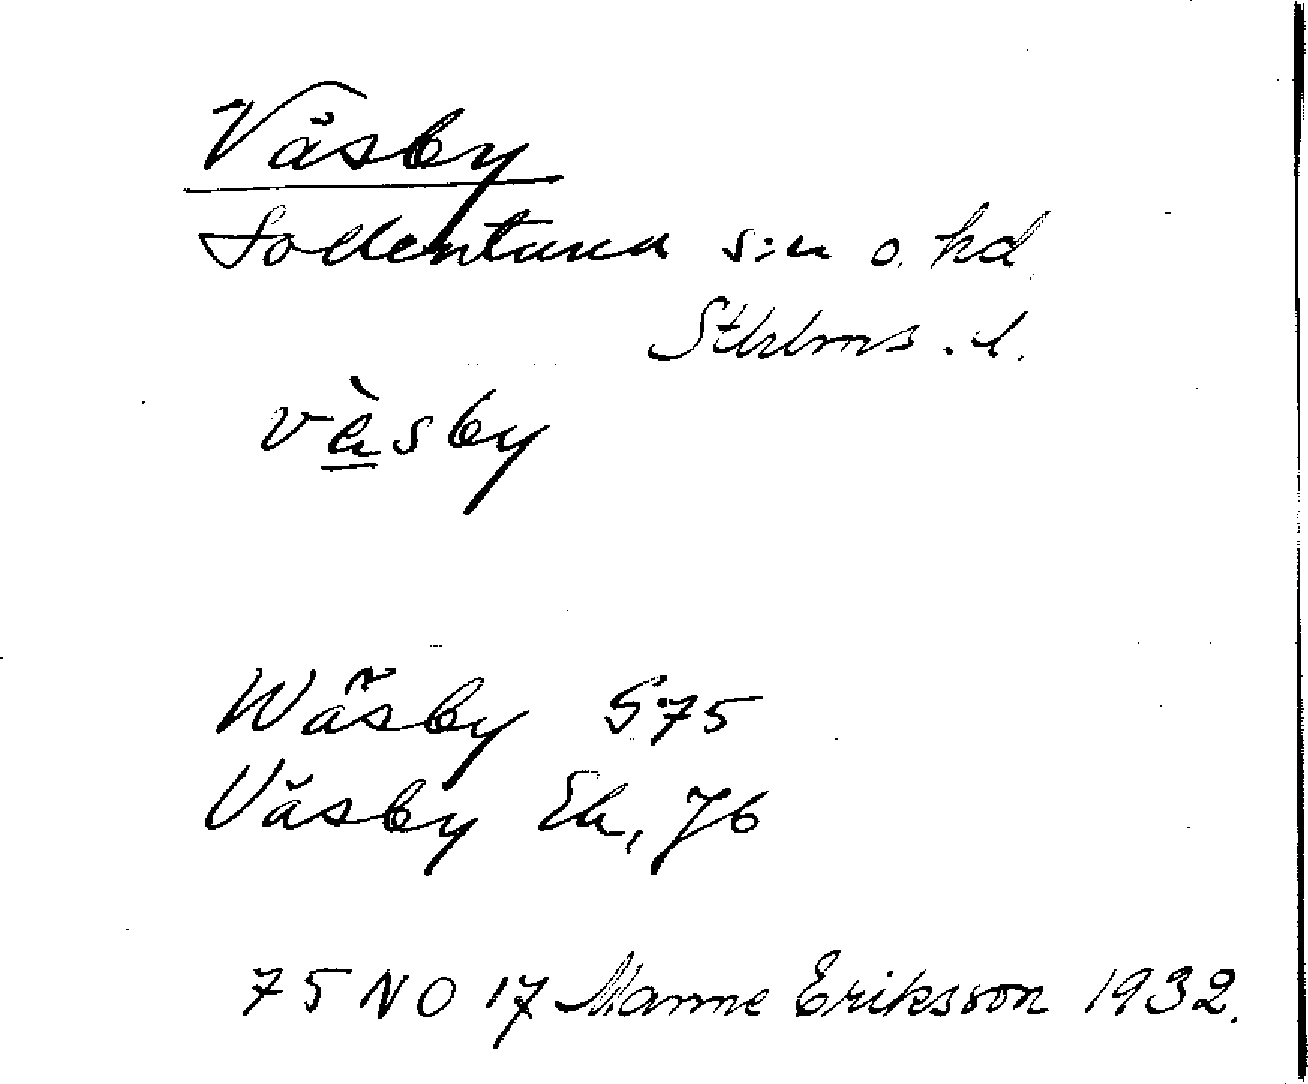 Väsby
Sollentuna s:n o. hd.
Sthlms. l.
väsby
Wäsby G75
Väsby Ek, Jb
75 NO 17 Manne Eriksson 1932.